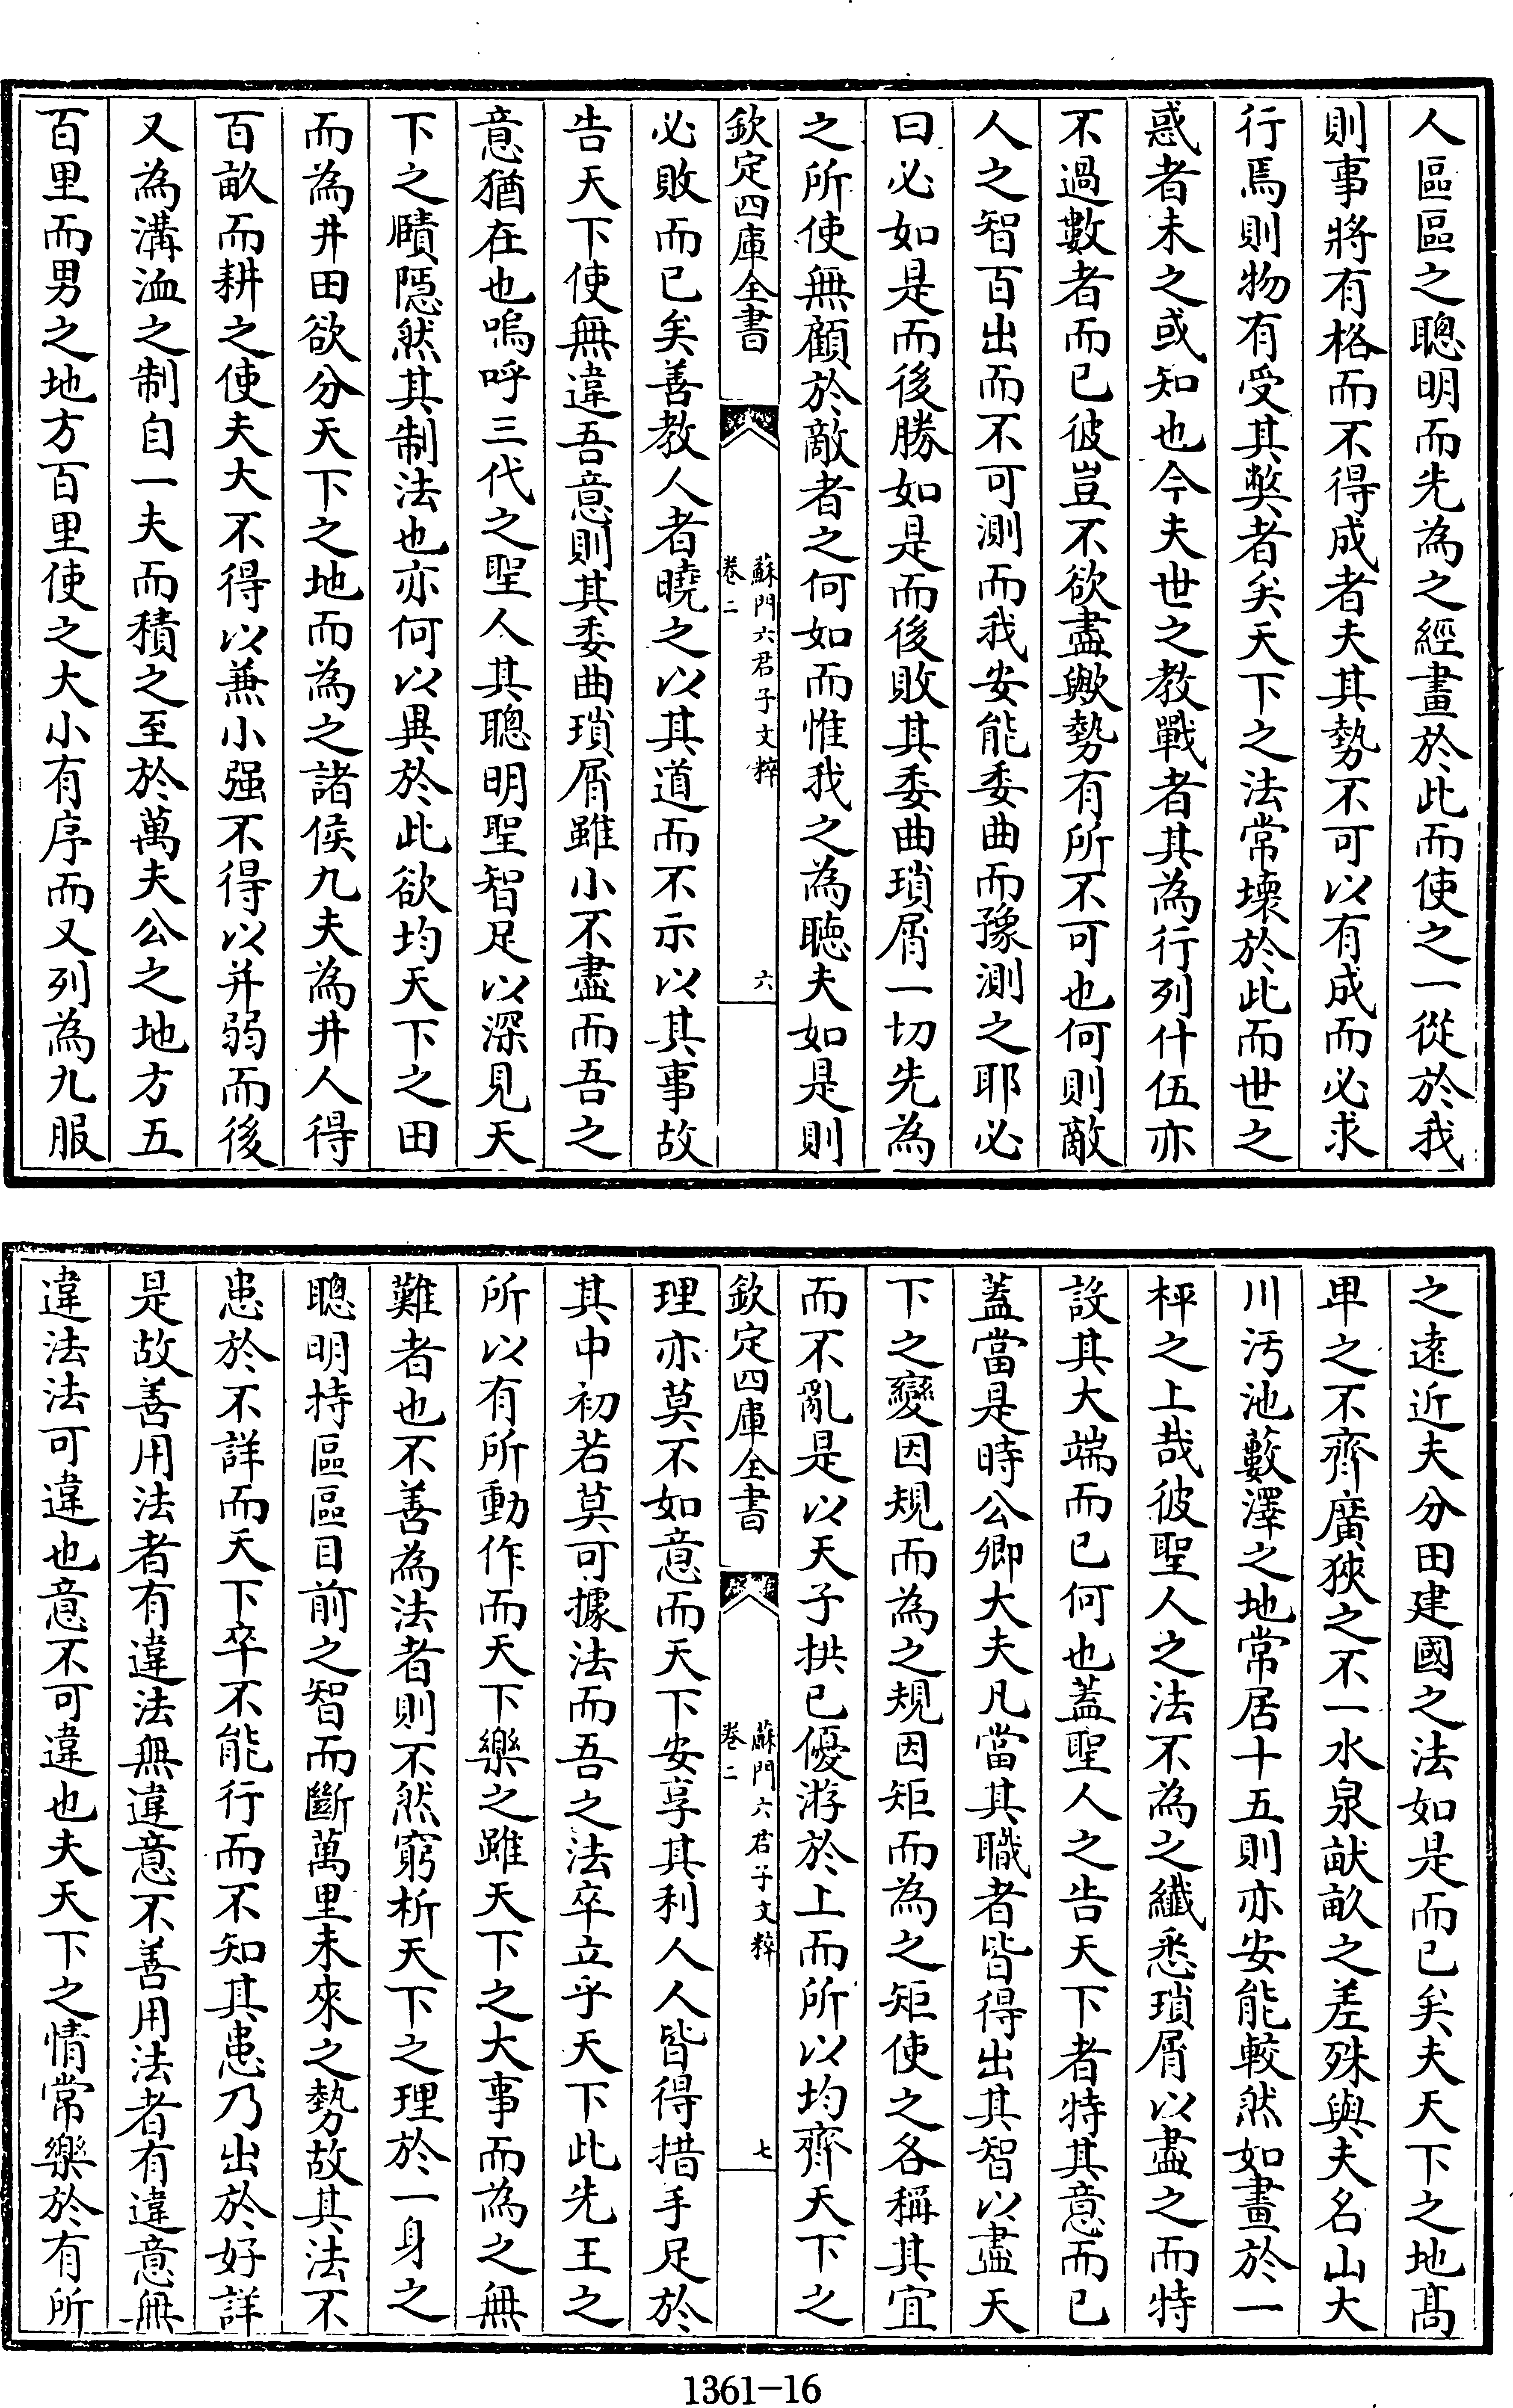 人區區之聰明而先為之經畫於此而使之一從於我
則事將有格而不得成者夫其勢不可以有成而必求
行焉則物有受其弊者矣天下之法常壞於此而世之
惑者未之或知也今夫世之教戰者其為行列什伍亦
不過數者而已彼豈不欲盡歟勢有所不可也何則敵
人之智百出而不可測而我安能委曲而豫測之耶必
曰必如是而後勝如是而後敗其委曲瑣屑一切先為
之所使無顧於敵者之何如而惟我之為聽夫如是則
欽定四庫全書
蘇門六君子文粹
卷二
六
必敗而已矣善教人者曉之以其道而不示以其事故
告天下使無違吾意則其委曲瑣屑雖小不盡而吾之
意猶在也嗚呼三代之聖人其聰明聖智足以深見天
下之賾隱然其制法也亦何以異於此欲均天下之田
而為井田欲分天下之地而為之諸侯九夫為井人得
百畝而耕之使夫大不得以兼小强不得以并弱而後
又為溝洫之制自一夫而積之至於萬夫公之地方五
百里而男之地方百里使之大小有序而又列為九服
之遠近夫分田建國之法如是而已矣夫天下之地高
卑之不齊廣狹之不一水泉畎畝之差殊與夫名山大
川汚池藪澤之地常居十五則亦安能較然如畫於一
枰之上哉彼聖人之法不為之纖悉瑣屑以盡之而特
設其大端而已何也蓋聖人之告天下者特其意而已
蓋當是時公卿大夫凡當其職者皆得出其智以盡天
下之變因規而為之規因矩而為之矩使之各稱其宜
而不亂是以天子拱已優游於上而所以均齊天下之
欽定四庫全書
蘇門六君子文粹
卷二
七
理亦莫不如意而天下安享其利人人皆得措手足於
其中初若莫可據法而吾之法卒立乎天下此先王之
所以有所動作而天下樂之雖天下之大事而為之無
難者也不善為法者則不然窮析天下之理於一身之
聰明持區區目前之智而斷萬里未來之勢故其法不
患於不詳而天下卒不能行而不知其患乃出於好詳
是故善用法者有違法無違意不善用法者有違意無
違法法可違也意不可違也夫天下之情常樂於有所
1361-16